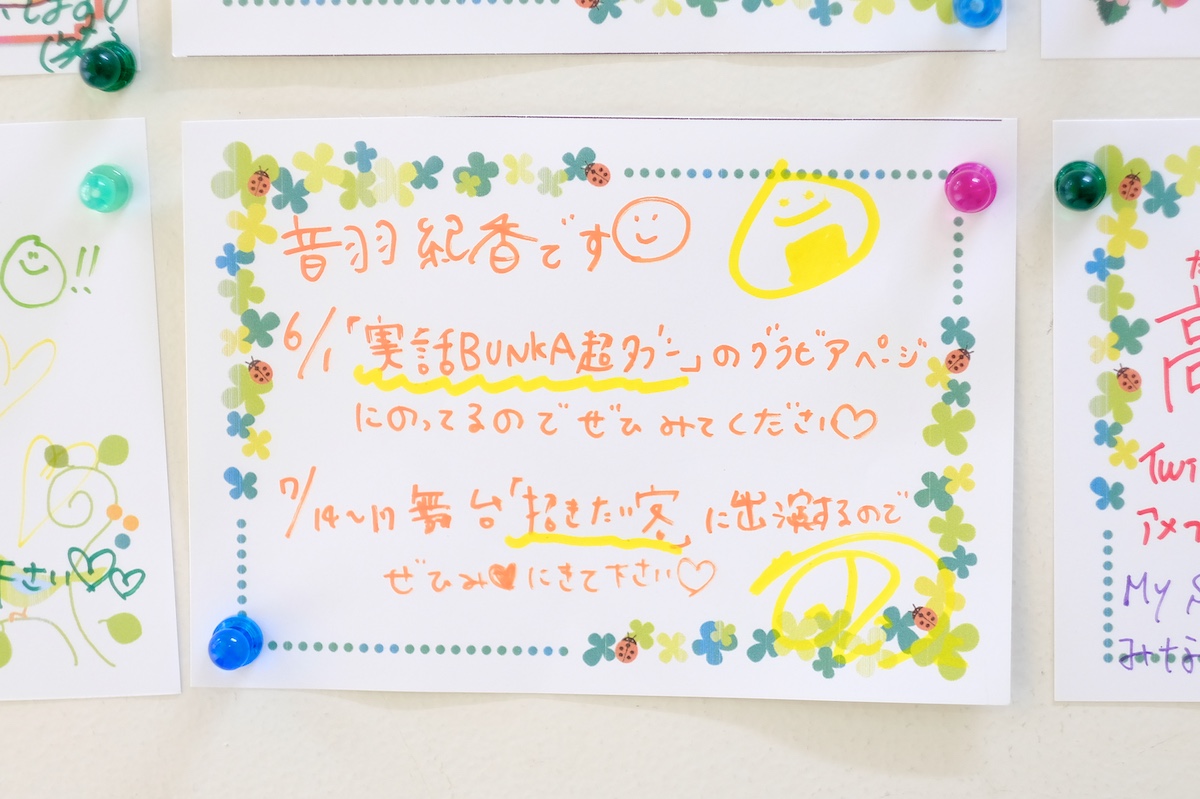 (笑)
!!
下さい♡♡
音羽 紀香です
6/1「実話BUNKA超タブー」のグラビアページ
にのってるのでぜひみてください♡
7/14~17 舞台「招きだい客」に出演するので
ぜひみ♥にきて下さい♡
高
Twi
アメブ
My S
みなさ